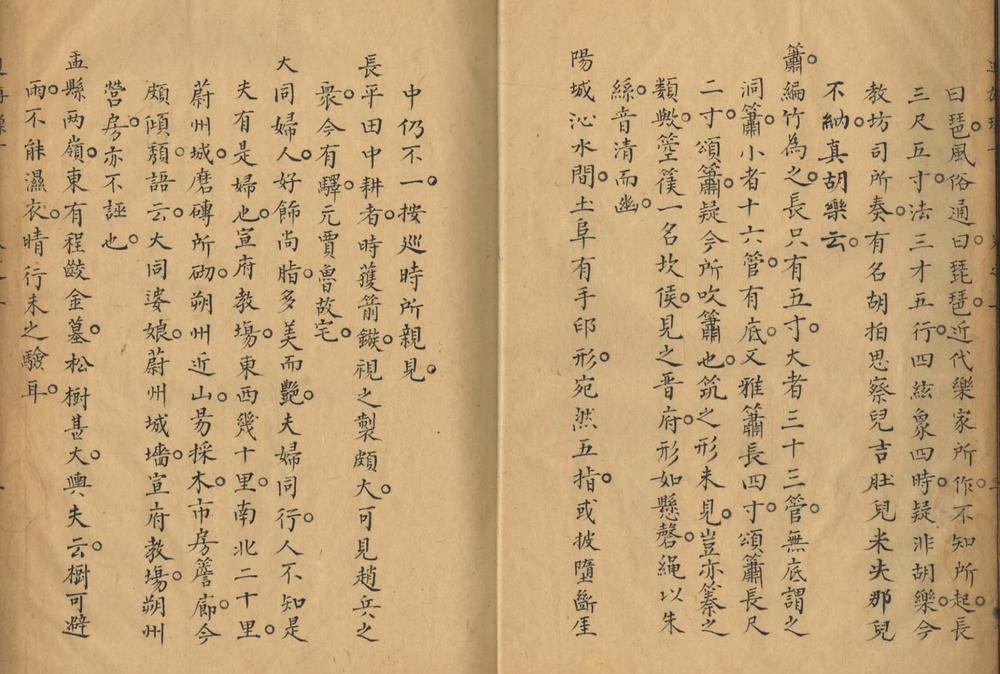 曰琵風俗通曰琵琶近代樂家所作不知所起長
三尺五寸法三才五行四絃象四時疑非胡樂今
教坊司所奏有名胡拍思察兒吉肚兒米失那兒
不納真胡樂云
簫編竹為之長只有五寸大者三十三管無底謂之
洞簫小者十六管有底又雅簫長四寸頌簫長尺
二寸頌簫疑今所吹簫也筑之形未見豈亦篆之
類歟箜篌一名坎侯見之晋府形如懸磬繩以朱
絲音清而幽
陽城沁水間土阜有手印形宛然五指或披墮斷厓
中仍不一按巡時所親見
長平田中耕者時獲箭鏃視之製頗大可見趙兵之
衆今有驛元賈魯故宅
大同婦人好飾尚脂多美而艷夫婦同行人不知是
夫有是婦也宣府教場東西幾十里南北二十里
蔚州城磨磚所砌朔州近山昜採木市房簷廊今
頗傾頽語云大同婆娘蔚州城墻宣府教場朔州
營房亦不誣也
盂縣两嶺東有程皷金墓松樹甚大輿夫云樹可避
雨不能濕衣晴行未之驗耳